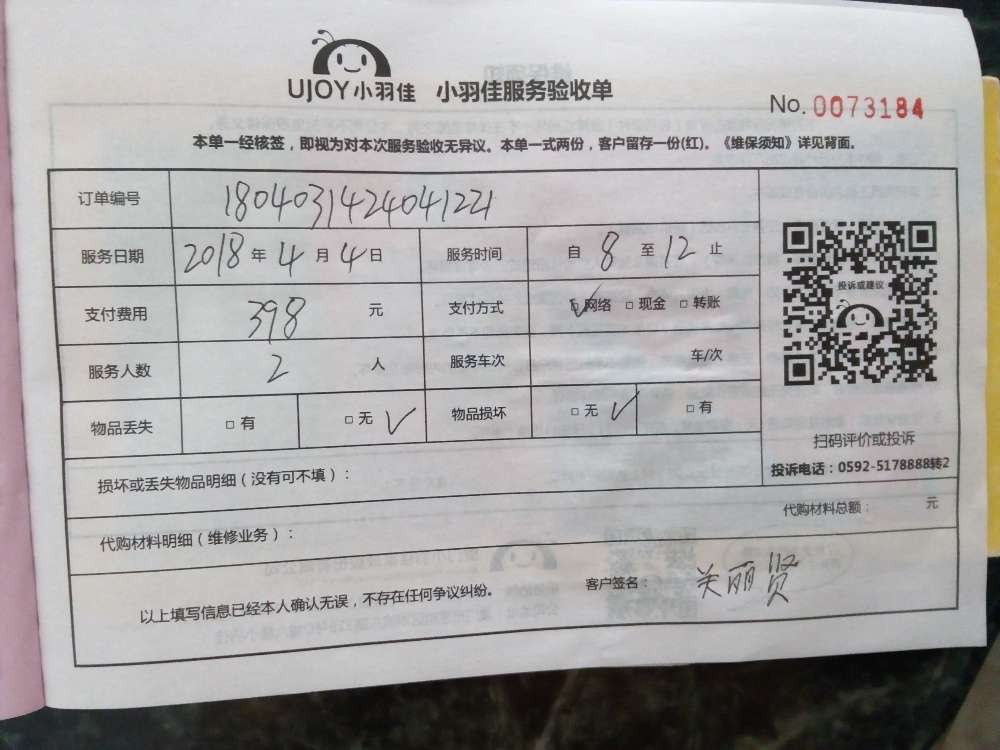 UJOY小羽佳 小羽佳服务验收单
No. 0073184
本单一经核签，即视为对本次服务验收无异议。本单一式两份，客户留存一份(红)。《维保须知》详见背面。
订单编号 1804031424041221
服务日期 2018年4月4日 服务时间 自8至12止
支付费用 398 元 支付方式 ☑网络 □现金 □转账
服务人数 2 人 服务车次 车/次
物品丢失 □有 □无✓ 物品损坏 □无✓ □有
投诉或建议
扫码评价或投诉
投诉电话：0592-5178888转2
损坏或丢失物品明细（没有可不填）：
代购材料明细（维修业务）： 代购材料总额： 元
以上填写信息已经本人确认无误，不存在任何争议纠纷。 客户签名： 关丽贤